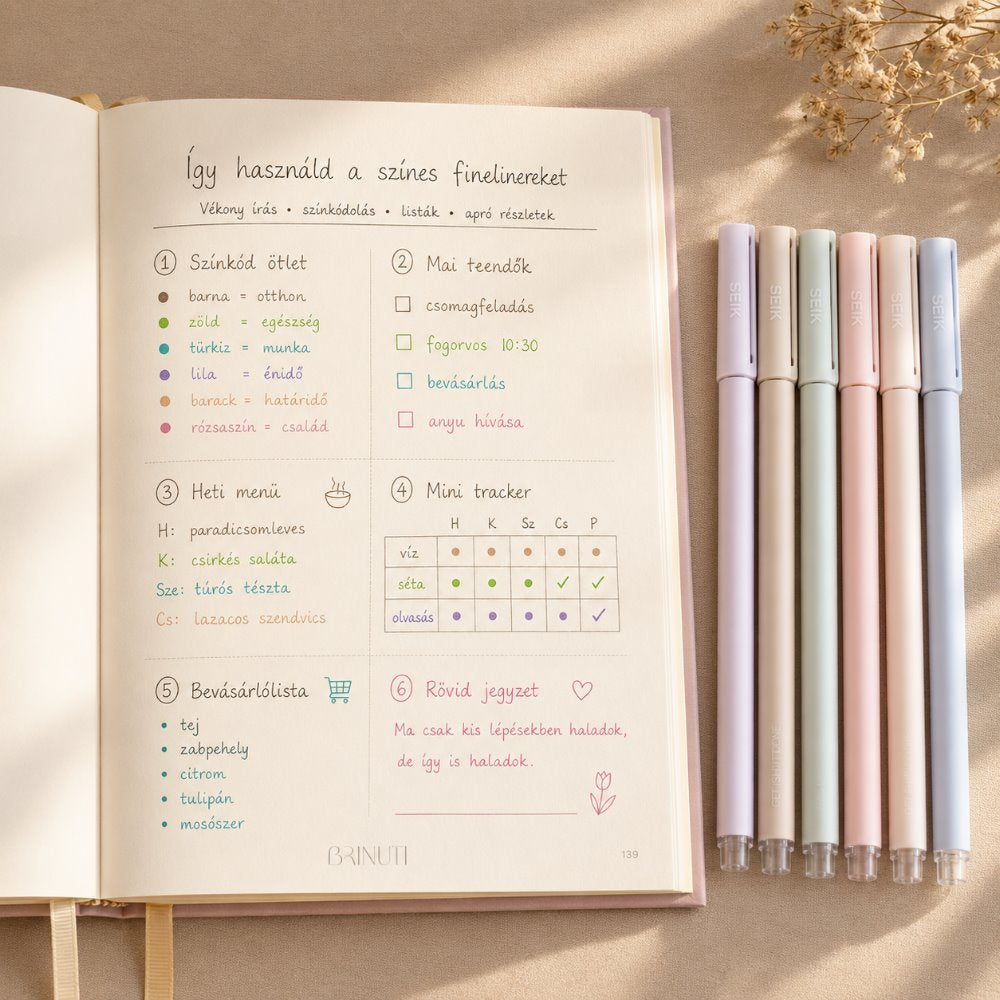 Így használd a színes finelinereket
Vékony írás • színkódolás • listák • apró részletek
1 Színkód ötlet
barna = otthon
zöld = egészség
türkiz = munka
lila = énidő
barack = határidő
rózsaszín = család
2 Mai teendők
csomagfeladás
fogorvos 10:30
bevásárlás
anyu hívása
3 Heti menü
H: paradicsomleves
K: csirkés saláta
Sze: túrós tészta
Cs: lazacos szendvics
4 Mini tracker
H K Sz Cs P
víz
séta ✓ ✓
olvasás ✓
5 Bevásárlólista
• tej
• zabpehely
• citrom
• tulipán
• mosószer
6 Rövid jegyzet
Ma csak kis lépésekben haladok,
de így is haladok.
BRINUTI
139
SEIK
SEIK
SEIK
SEIK
SEIK
SEIK